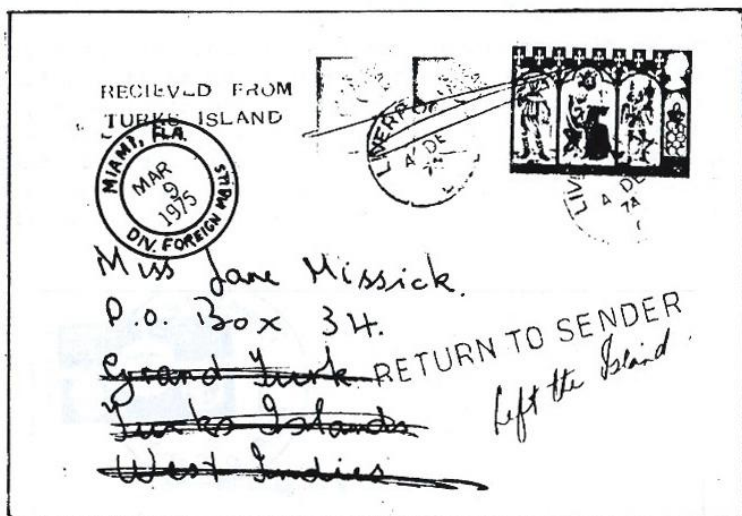 RECIEVED FROM
TURKS ISLAND
MIAMI, FLA.
MAR
9
1975
DIV. FOREIGN MAILS
LIVERPO
4 DE
LIV
4 DE
74
Miss Jane Missick.
P.O. Box 34.
Grand Turk
Turks Islands
West Indies
RETURN TO SENDER
Left the Island.